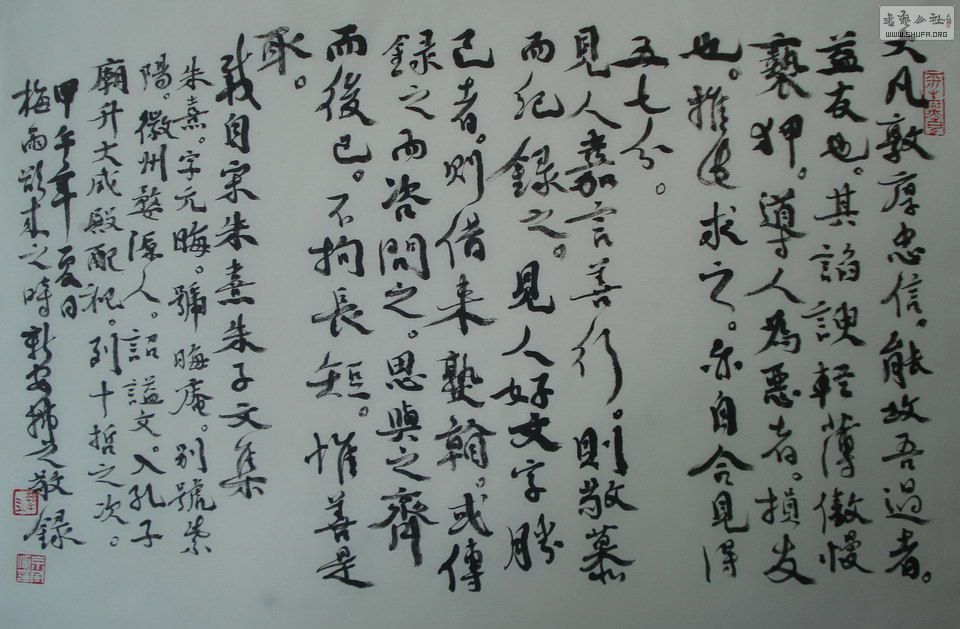 大凡敦厚忠信。能攻吾過者。
益友也。其諂諛輕薄傲慢
褻狎。導人為惡者。損友
也。推此求之。亦自合見得
五七分。
見人嘉言善行。則敬慕
而紀錄之。見人好文字勝
己者。則借來熟翰。或傳
錄之而咨問之。思與之齊
而後已。不拘長短。惟善是
取。
載自宋朱熹朱子文集
朱熹。字元晦。號晦庵。別號紫
陽。徽州婺源人。詔謚文。入孔子
廟升大成殿配祀。列十哲之次。
甲午年夏日
梅雨欲來之時新安敬錄
書法公社
WWW.SHUFA.ORG